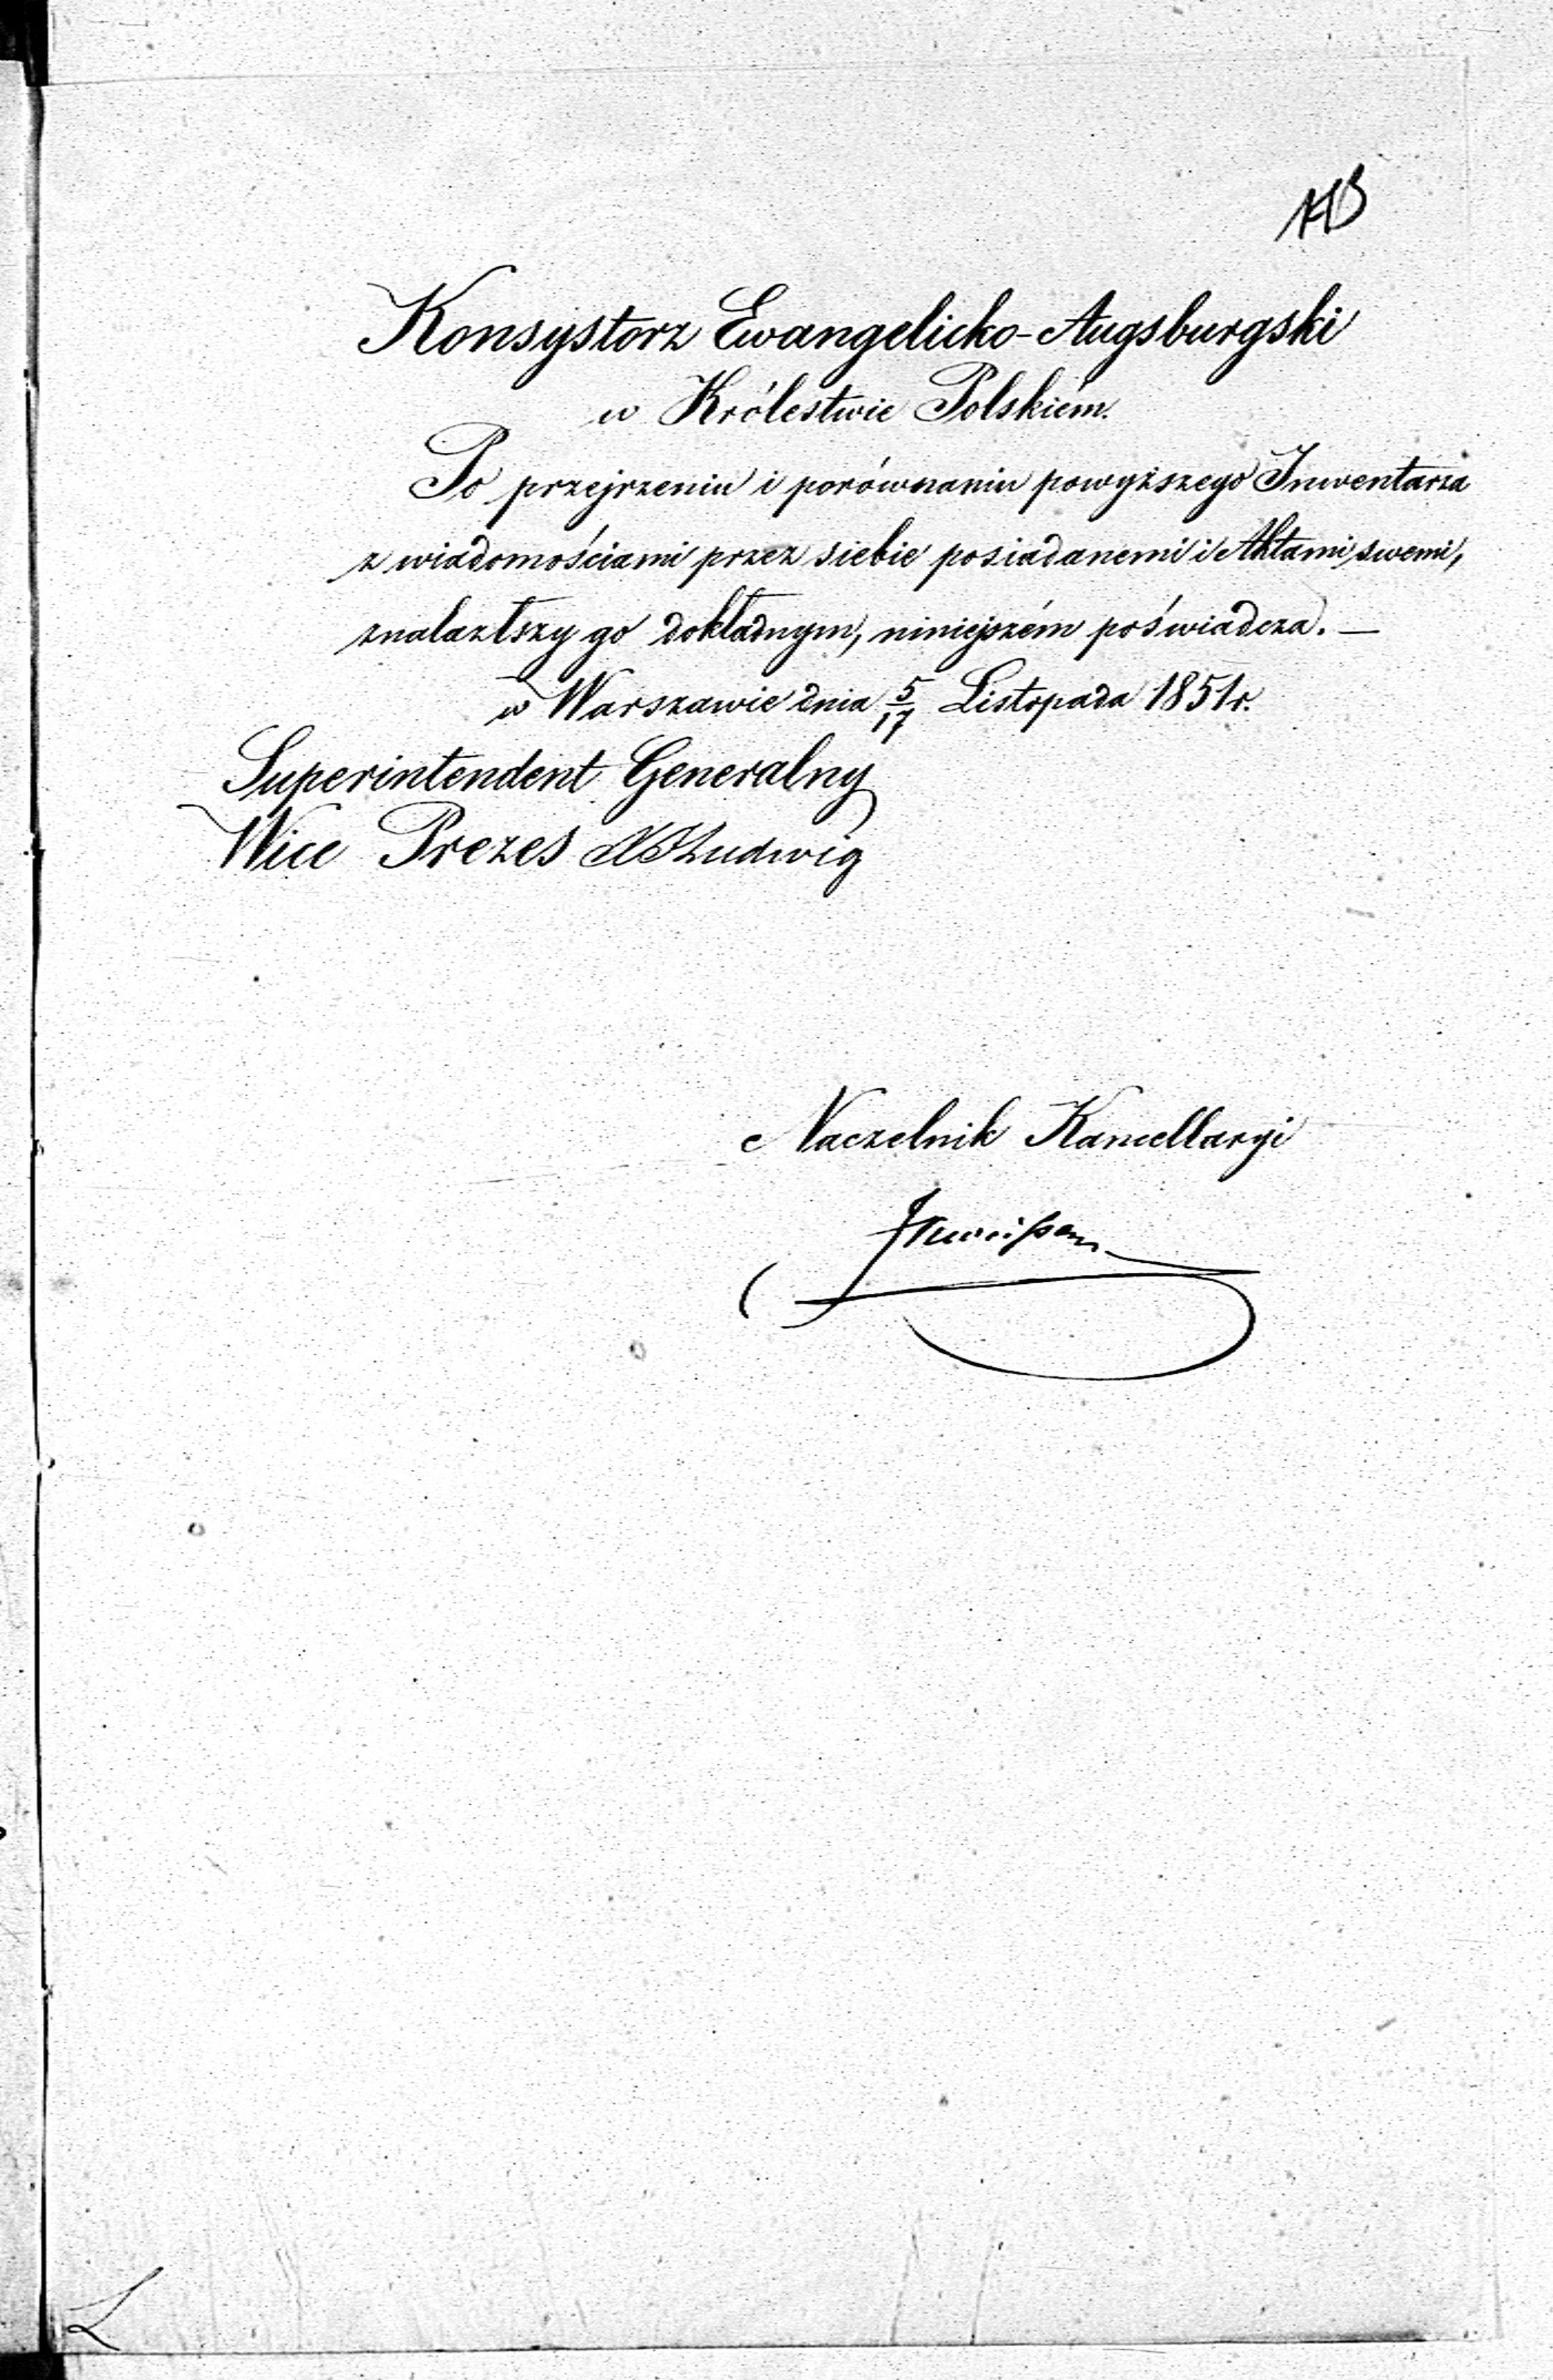 Konsystorz Ewangelicko-Augsburgski
w Królestwie Polskiém.
Po przejrzeniu i porównaniu powyższego Inwentarza
z wiadomościami przez siebie posiadanemi i Aktami swemi,
znalazłszy go dokładnym, niniejszém poświadcza. —
w Warszawie dnia 5/17 Listopada 1851 r.
Superintendent Generalny
Wice Prezes Ludwig
Naczelnik Kancellaryi